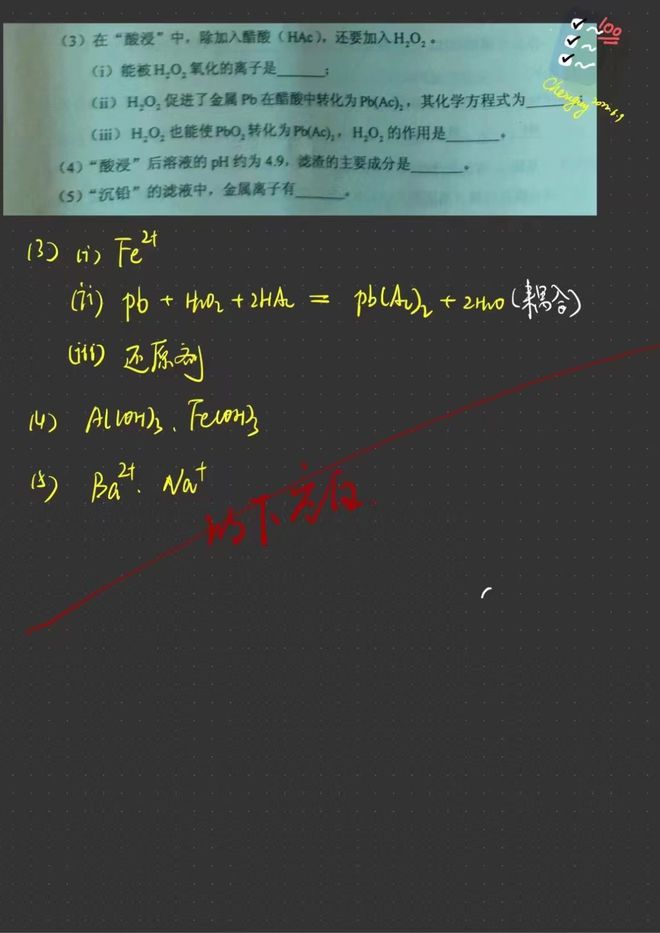 100
(3) 在“酸浸”中，除加入醋酸（HAc），还要加入H₂O₂。
(i) 能被H₂O₂氧化的离子是______；
(ii) H₂O₂促进了金属Pb在醋酸中转化为Pb(Ac)₂，其化学方程式为______
(iii) H₂O₂也能使PbO₂转化为Pb(Ac)₂，H₂O₂的作用是______。
(4)“酸浸”后溶液的pH约为4.9，滤渣的主要成分是______。
(5)“沉铅”的滤液中，金属离子有______。
(3) (i) Fe²⁺
(ii) pb + H₂O₂ + 2HAc = pb(Ac)₂ + 2H₂O (耦合)
(iii) 还原剂
(4) Al(OH)₃、Fe(OH)₃
(5) Ba²⁺、Na⁺